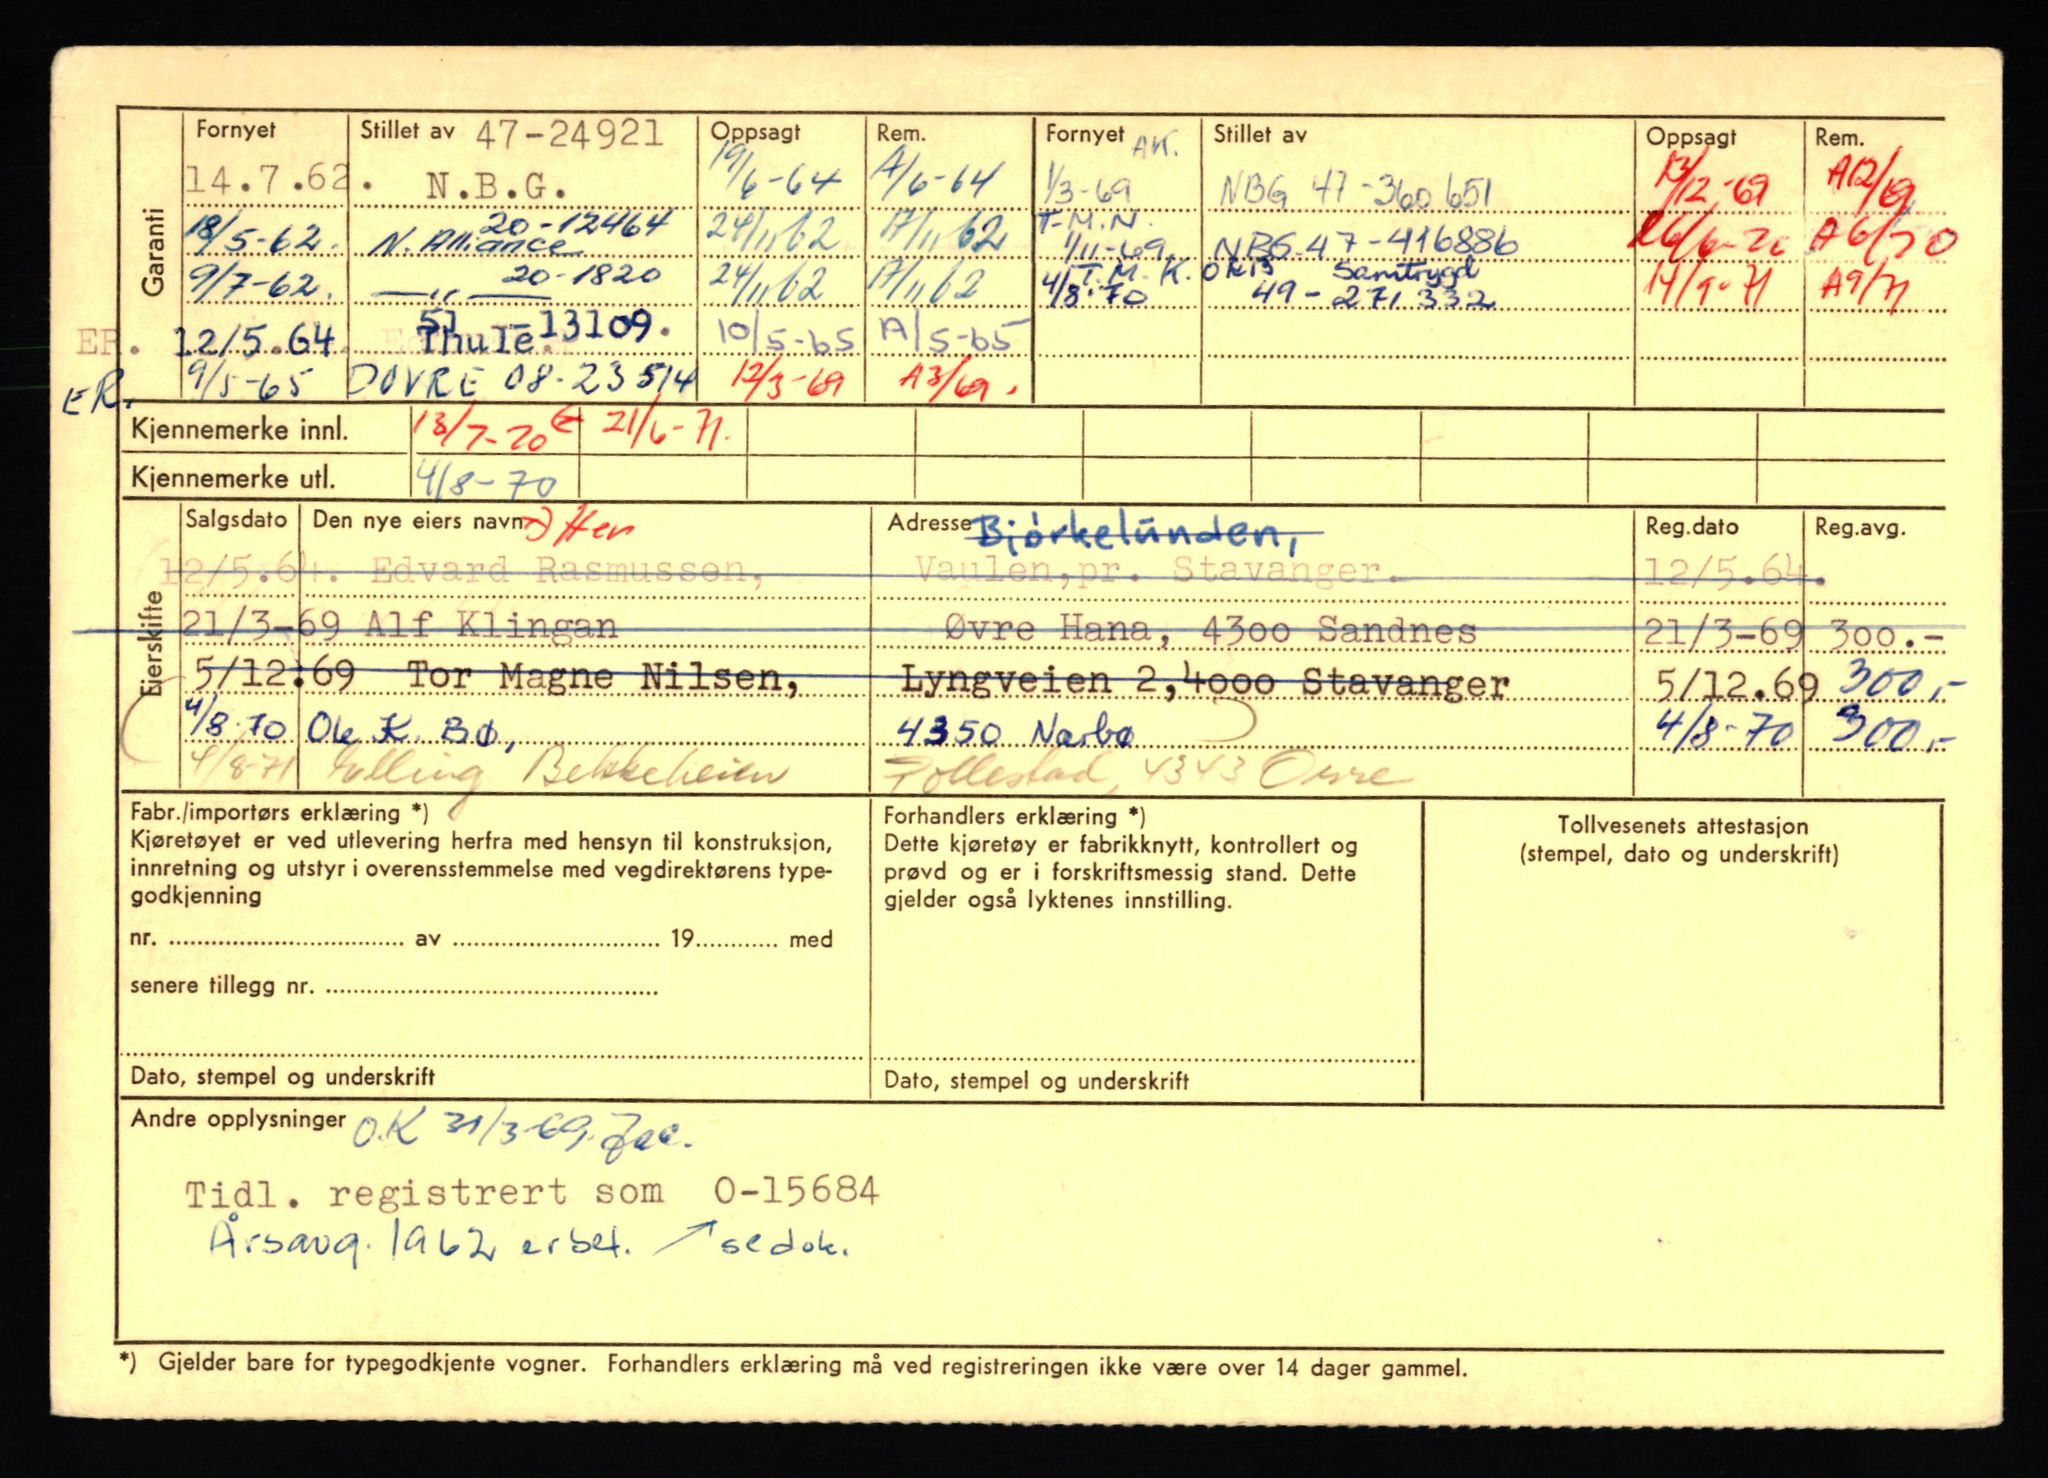 Garanti
Fornyet Stillet av 47-24921 Oppsagt Rem. Fornyet AK. Stillet av Oppsagt Rem.
14.7.62. N.B.G. 19/6-64 A/6-64 1/3-69 NBG 47-360651 13/12-69 A12/69
18/5-62. 20-12464 N. Alliance 24/11 62 17/11 62 T.M.N. 1/11-69 NBG.47-416886 26/6-70 A6/70
9/7-62. —„— 20-1820 24/11 62 17/11 62 4/8-70 O.K.B Samtrygd 49-271332 14/9-71 A9/71
ER. 12/5.64 51-13109. Thule 10/5-65 A/5-65
ER. 9/5-65 DOVRE 08-23514 12/3-69 A3/69.
Kjennemerke innl. 13/7-70 21/6-71.
Kjennemerke utl. 4/8-70
Eierskifte
Salgsdato Den nye eiers navn Adresse Bjørkelunden, Reg.dato Reg.avg.
12/5.64. Edvard Rasmussen, Vaulen,pr. Stavanger. 12/5.64.
21/3-69 Alf Klingan Øvre Hana, 4300 Sandnes 21/3-69 300.-
5/12.69 Tor Magne Nilsen, Lyngveien 2,4000 Stavanger 5/12.69 300,-
4/8-70 Ole K. Bø, 4350 Nærbø 4/8-70 300,-
4/8-71 Elling Bekkeheien Pollestad, 4343 Orre
Fabr./importørs erklæring *)
Kjøretøyet er ved utlevering herfra med hensyn til konstruksjon,
innretning og utstyr i overensstemmelse med vegdirektørens type-
godkjenning
nr. av 19 med
senere tillegg nr.
Dato, stempel og underskrift
Forhandlers erklæring *)
Dette kjøretøy er fabrikknytt, kontrollert og
prøvd og er i forskriftsmessig stand. Dette
gjelder også lyktenes innstilling.
Dato, stempel og underskrift
Tollvesenets attestasjon
(stempel, dato og underskrift)
Andre opplysninger O.K 31/3-69.
Tidl. registrert som O-15684
Årsavg. 1962 er bet. se dok.
*) Gjelder bare for typegodkjente vogner. Forhandlers erklæring må ved registreringen ikke være over 14 dager gammel.